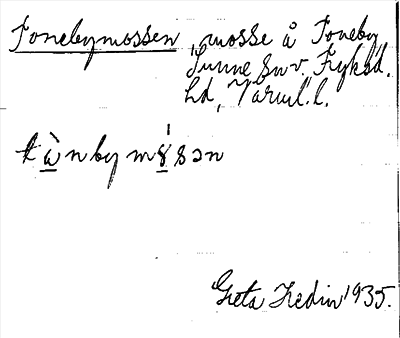 Tonebymossen, mosse å Toneby
Sunne sn v. Fryksd.
hd, Värml. l.
tὰnbymɤ́sən
Greta Hedin 1935.